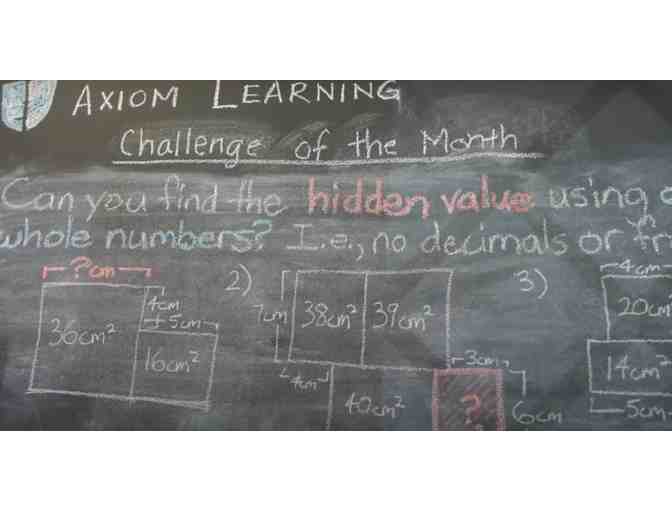 AXIOM LEARNING
Challenge of the Month
Can you find the hidden value using
whole numbers? I.e., no decimals or
?cm
36cm²
4cm
5cm
16cm²
2)
7cm
38cm²
39cm²
4cm
40cm²
3cm
?
6cm
3)
4cm
20cm
14cm²
5cm